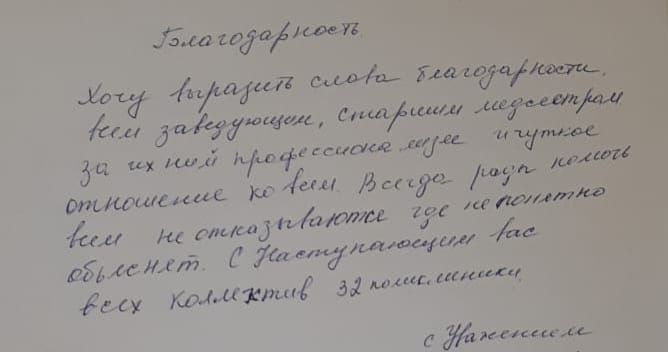 Благодарность.
Хочу выразить слова благодарности,
всем заведующим, старшим медсестрам
за их ний профессионализм и чуткое
отношение ко всем. Всегда рады помочь
всем не отказывают же где не понятно
обьяснят. С Наступающим вас
всех коллектив 32 поликлиники.
с Уважением